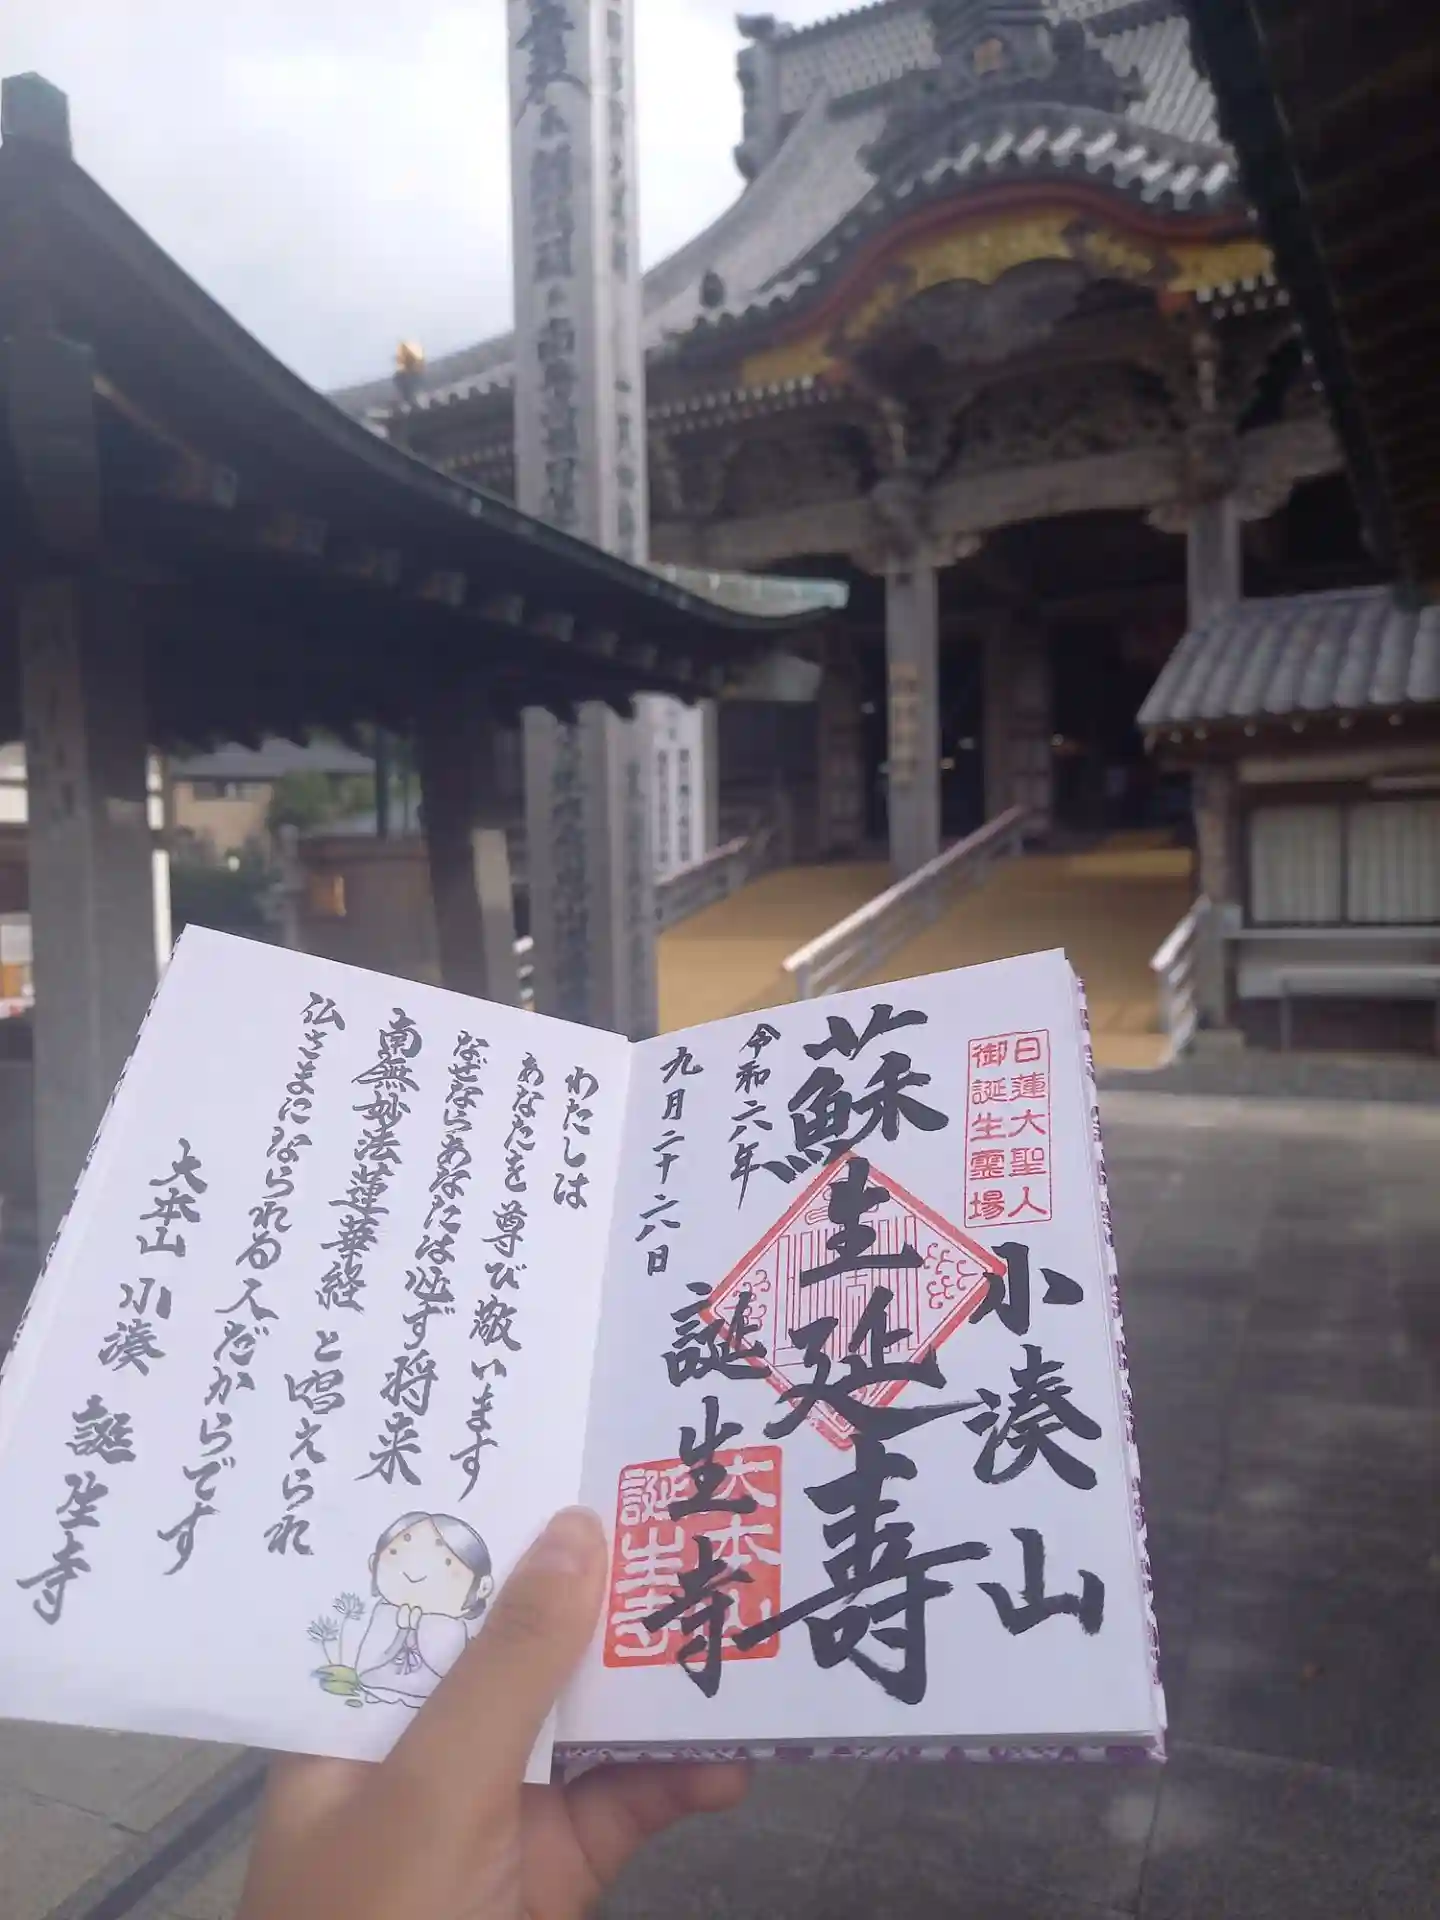 日蓮大聖人
御誕生霊場
小湊山
蘇生延壽
令和六年
九月二十六日
誕生寺
大本山
誕生寺
わたしは
あなたを尊び敬います
なぜならあなたは必ず将来
南無妙法蓮華経と唱えられ
仏さまになられる人だからです
大本山 小湊 誕生寺